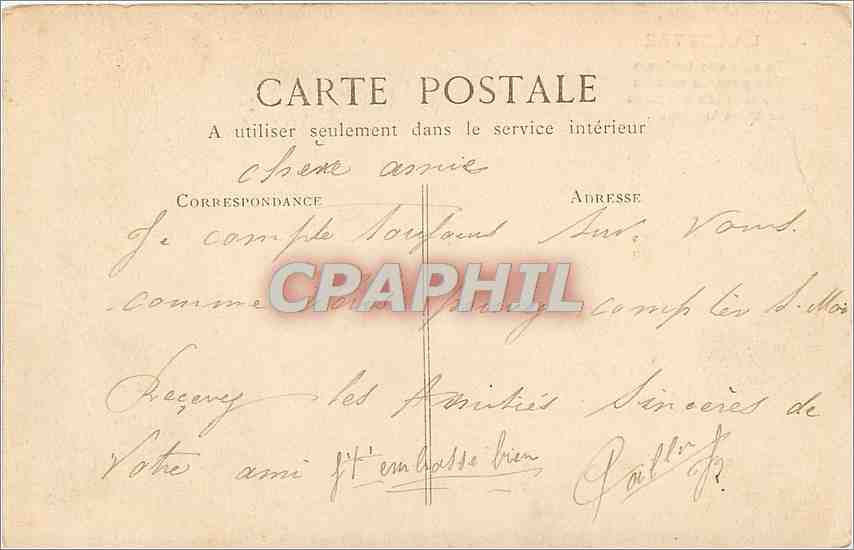 CARTE POSTALE
A utiliser seulement dans le service intérieur
chère amie
CORRESPONDANCE ADRESSE
Je compte toujours sur vous.
CPAPHIL
comme vous pouvez compter s. Moi
Recevez les Amitiés Sincères de
Votre ami j't'embrasse bien